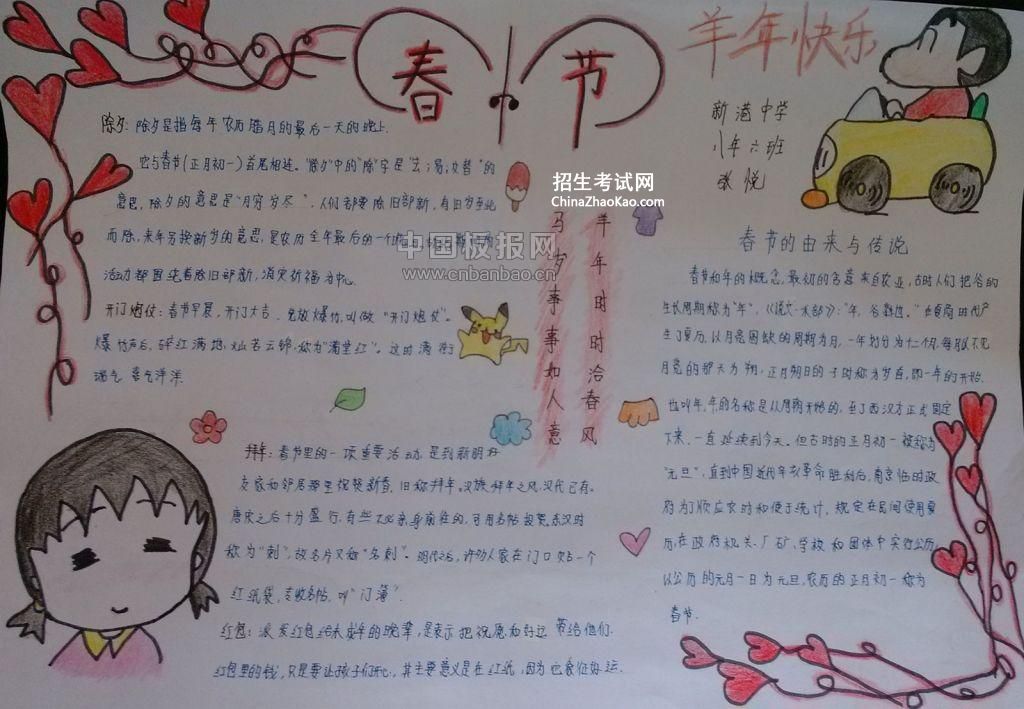 春节
羊年快乐
新港中学
八年六班
张悦
除夕: 除夕是指每年农历腊月的最后一天的晚上.
它与春节(正月初一)首尾相连。"除夕"中的"除"字是"去;易;交替"的
意思, 除夕的意思是"月穷岁尽", 人们都要除旧部新, 有旧岁至此
而除, 来年另换新岁的意思, 是农历全年最后的一个晚
活动都围绕着除旧部新, 消灾祈福为中心.
开门炮仗: 春节早晨, 开门大吉, 先放爆竹, 叫做"开门炮仗"。
爆竹声后, 碎红满地, 灿若云锦, 称为"满堂红"。这时满街
瑞气, 喜气洋洋.
拜年: 春节里的一项重要活动, 是到新朋好
友家和邻居那里祝贺新春, 旧称拜年。汉族拜年之风, 汉代已有。
唐宋之后十分盛行, 有些不必亲身前往的, 可用名帖投贺。东汉时
称为"刺", 故名片又称"名刺"。明代之后, 许多人家在门口贴一个
红纸袋, 专收名帖, 叫"门簿".
红包: 派发红包给未成年的晚辈, 是表示把祝愿和好运带给他们.
红包里的钱, 只是要让孩子们开心, 其主要意义是在红纸, 因为它象征好运.
羊年时时洽春风
马岁事事如人意
春节的由来与传说
春节和年的概念, 最初的含意来自农业, 古时人们把谷的
生长周期称为"年", 《说文·禾部》: "年, 谷熟也。"在夏商时代产
生了夏历, 以月亮圆缺的周期为月, 一年划分为十二个月, 每月以不见
月亮的那天为朔, 正月朔日的子时称为岁首, 即一年的开始.
也叫年, 年的名称是从周朝开始的, 至了西汉才正式固定
下来, 一直延续到今天。但古时的正月初一被称为
"元旦", 直到中国近代辛亥革命胜利后, 南京临时政
府为了顺应农时和便于统计, 规定在民间使用夏
历, 在政府机关、厂矿、学校和团体中实行公历,
以公历的元月一日为元旦, 农历的正月初一称为
春节.
招生考试网
ChinaZhaoKao.com
中国板报网
www.cnbanbao.cn